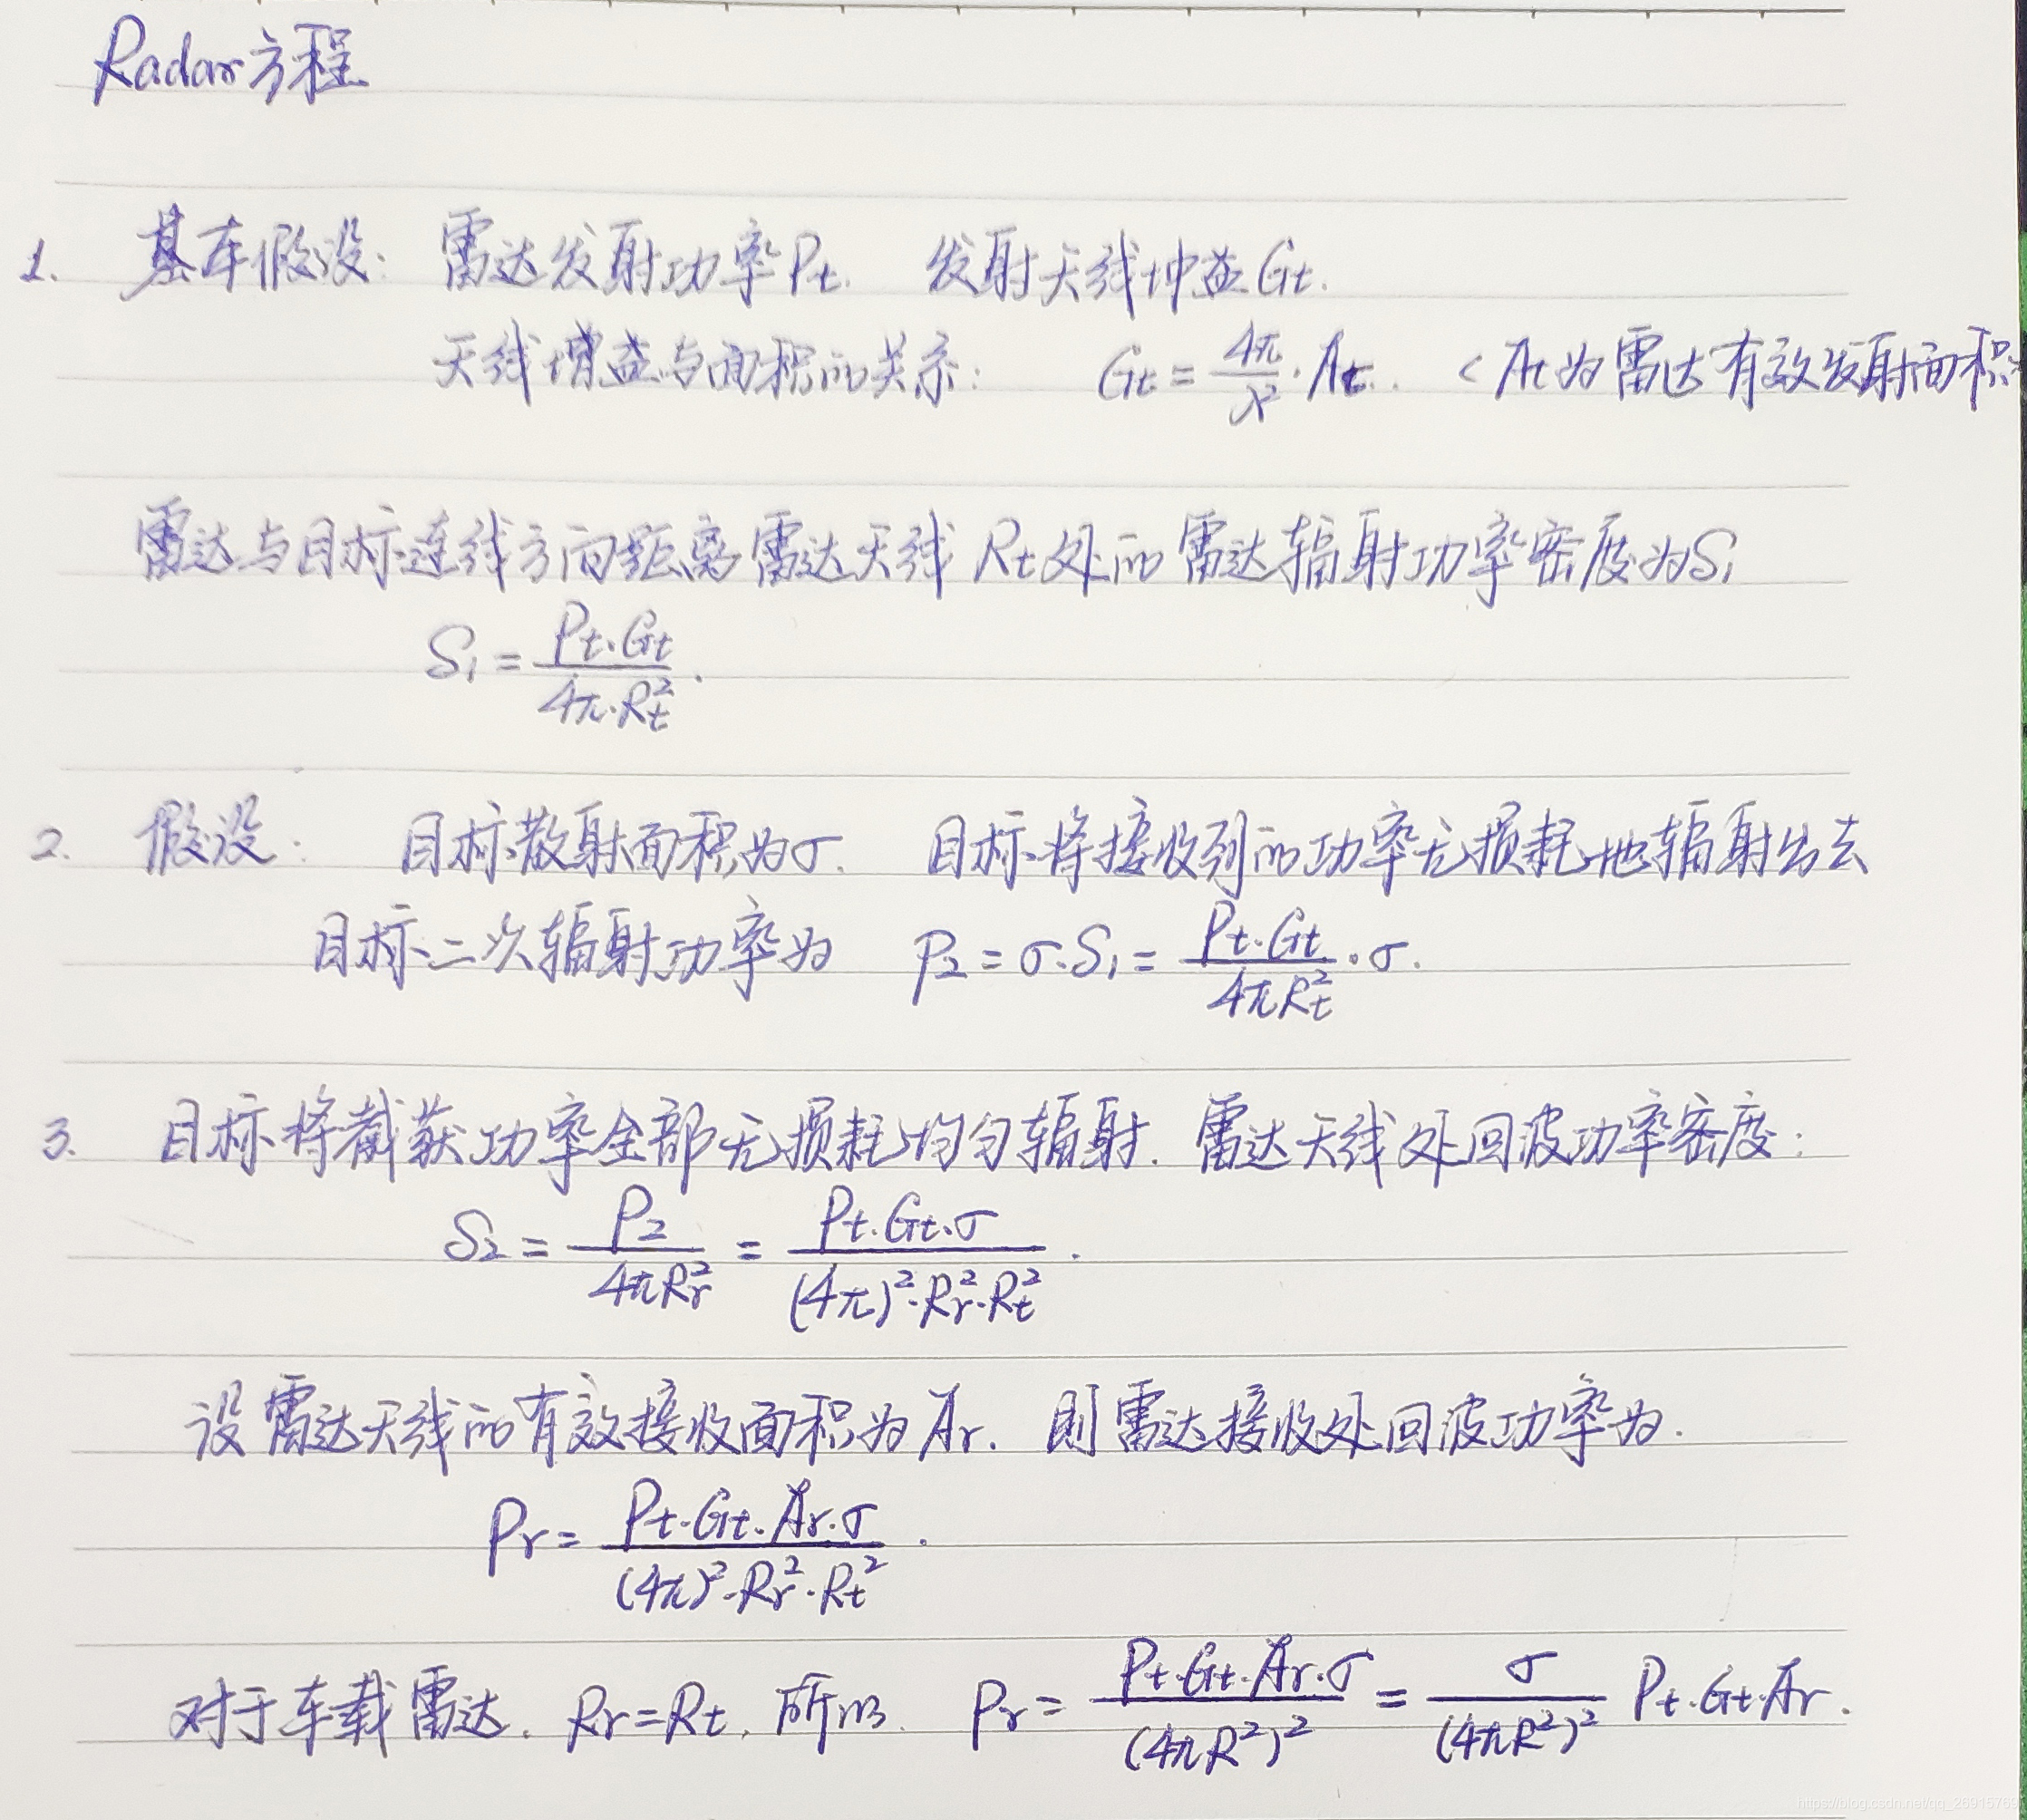 Radar方程
1. 基本假设: 雷达发射功率Pt. 发射天线增益Gt.
天线增益与面积的关系: Gt = 4π/λ² · At. <At为雷达有效发射面积>
雷达与目标连线方向距离雷达天线 Rt处的雷达辐射功率密度为S₁
S₁ = Pt·Gt / 4π·Rt² .
2. 假设: 目标散射面积为σ. 目标将接收到的功率无损耗地辐射出去
目标二次辐射功率为 P₂ = σ·S₁ = Pt·Gt / 4πRt² · σ.
3. 目标将截获功率全部无损耗均匀辐射. 雷达天线处回波功率密度:
S₂ = P₂ / 4πRr² = Pt·Gt·σ / (4π)²·Rr²·Rt² .
设雷达天线的有效接收面积为Ar. 则雷达接收处回波功率为.
Pr = Pt·Gt·Ar·σ / (4π)²·Rr²·Rt² .
对于车载雷达. Rr=Rt, 所以. Pr = Pt·Gt·Ar·σ / (4πR²)² = σ / (4πR²)² Pt·Gt·Ar.